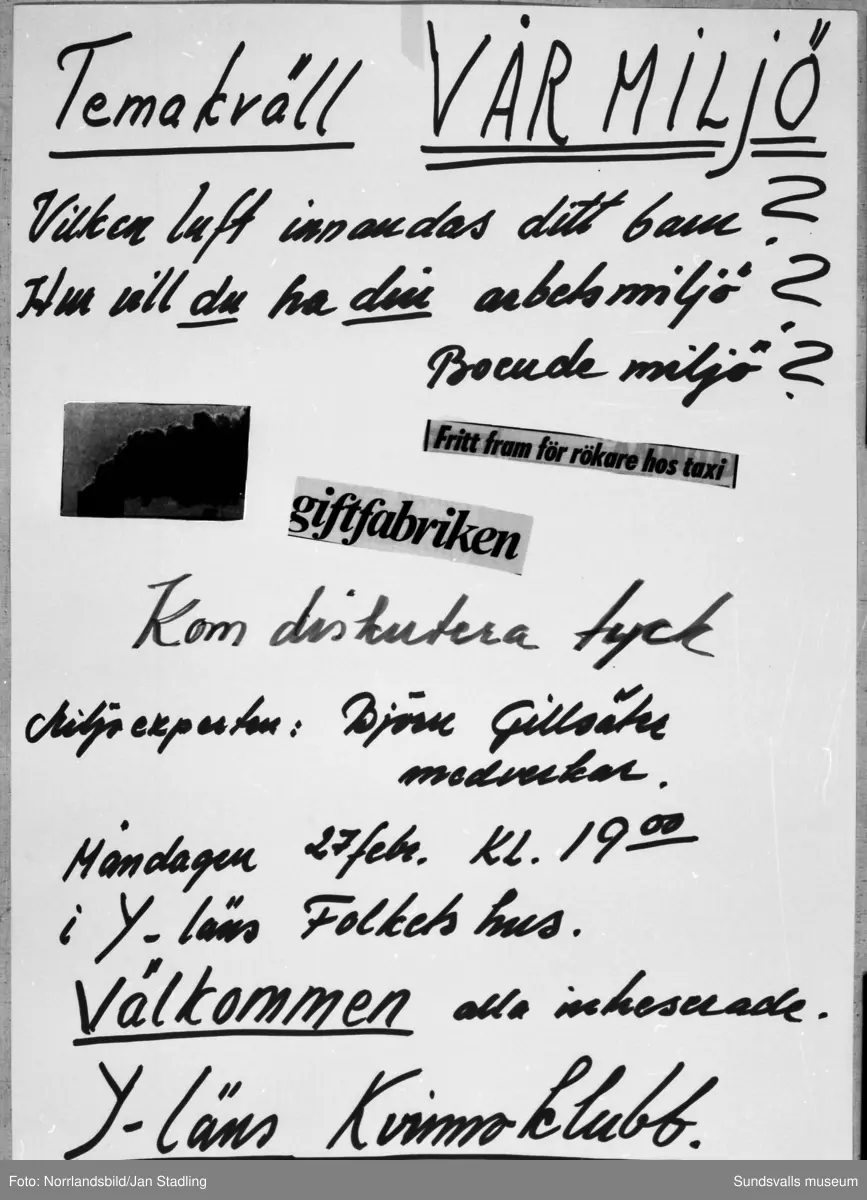 Temakväll VÅR MILJÖ
Vilken luft innandas ditt barn ?
Hur vill du ha din arbetsmiljö ?
Boende miljö ?
Fritt fram för rökare hos taxi
giftfabriken
Kom diskutera tyck
Miljöexperten: Björn Gillsäter
medverkar.
Måndagen 27 febr. Kl. 19 00
i Y-läns Folkets hus.
Välkommen alla intreserade.
Y-läns Kvinnoklubb.
Foto: Norrlandsbild/Jan Stadling
Sundsvalls museum